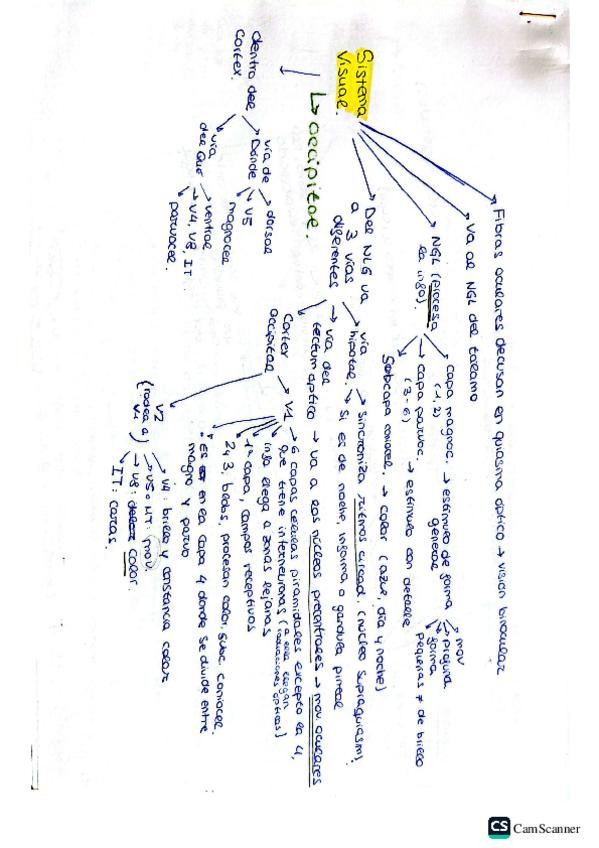 Sistema
visual.
↳ occipital.
Fibras oculares decusan en quiasma óptico → visión binocular
Va al NGL del tálamo
NGL (procesa
la info).
capa magnoc. → estímulo de forma
(1, 2) general
mov
profund.
forma
pequeñas ≠ de brillo
→ capa parvoc. → estímulo con detalle
(3-6)
Subcapa conioc. → color (azul, día y noche)
Del NLG va
a 3 vías
diferentes
vía
hipotál.
→ sincroniza ritmos circad. (núcleo supraquiasm)
→ Si es de noche, informa a glándula pineal
→ vía del
tectum óptico → va a los núcleos pretectales → mov. oculares
Cortex
occipital
→ V1
6 capas células piramidales excepto la 4,
que tiene interneuronas (a ella llegan
radiaciones ópticas)
info llega a zonas lejanas
1ª capa, campos receptivos
2 y 3, blobs, procesan color, subc. coniocel.
Es en la capa 4 donde se divide entre
magno y parvo
V2
(rodea a
V1)
V4: brillo y constancia color
→ V5 o MT: mov
→ V8: color.
IT: caras.
dentro del
cortex.
vía de
Donde
→ dorsal
→ V5
magnocel
vía
del Qué
→ ventral
→ V4, V8, IT
parvocel.
CS CamScanner